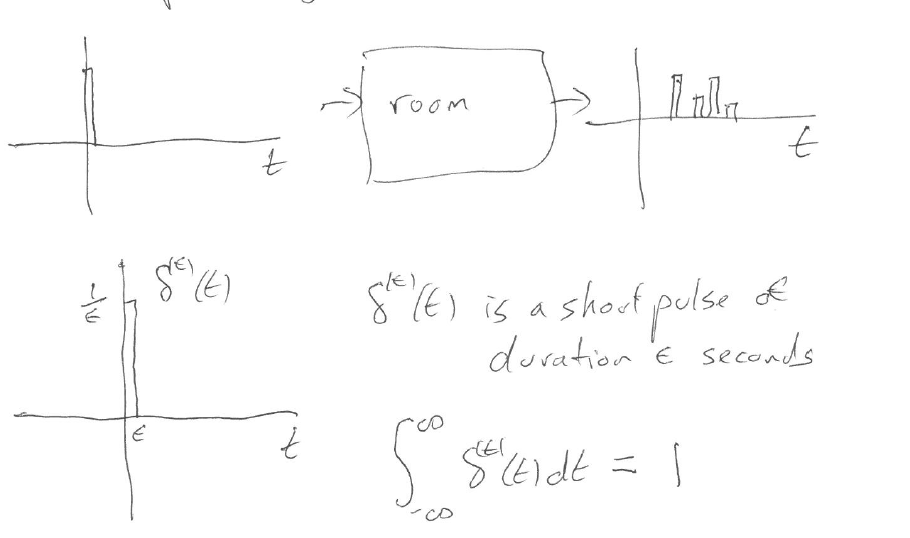 room
t
t
1/ϵ
δ^(ϵ)(t)
ϵ
t
δ^(ϵ)(t) is a short pulse of
duration ϵ seconds
∫_{-∞}^{∞} δ^(ϵ)(t) dt = 1